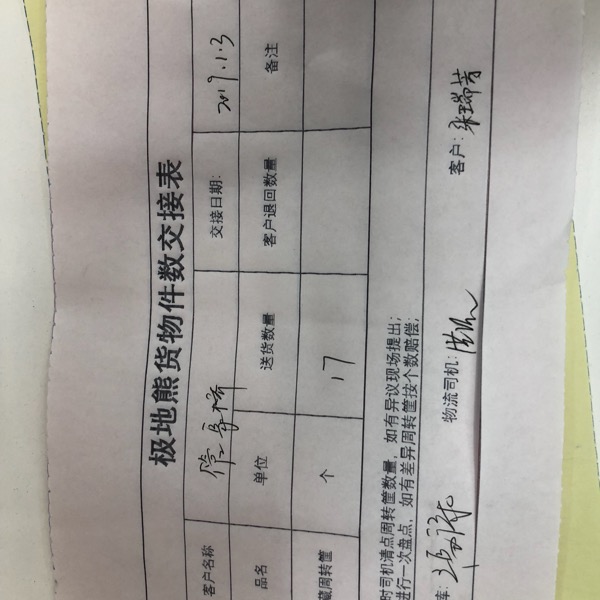 极地熊货物件数交接表
客户名称 交接日期: 2019.1.3
品名 单位 送货数量 客户退回数量 备注
藏周转筐 个 17
时司机清点周转筐数量，如有异议现场提出；
进行一次盘点，如有差异周转筐按个数赔偿；
库: 物流司机: 客户: 张瑞芳